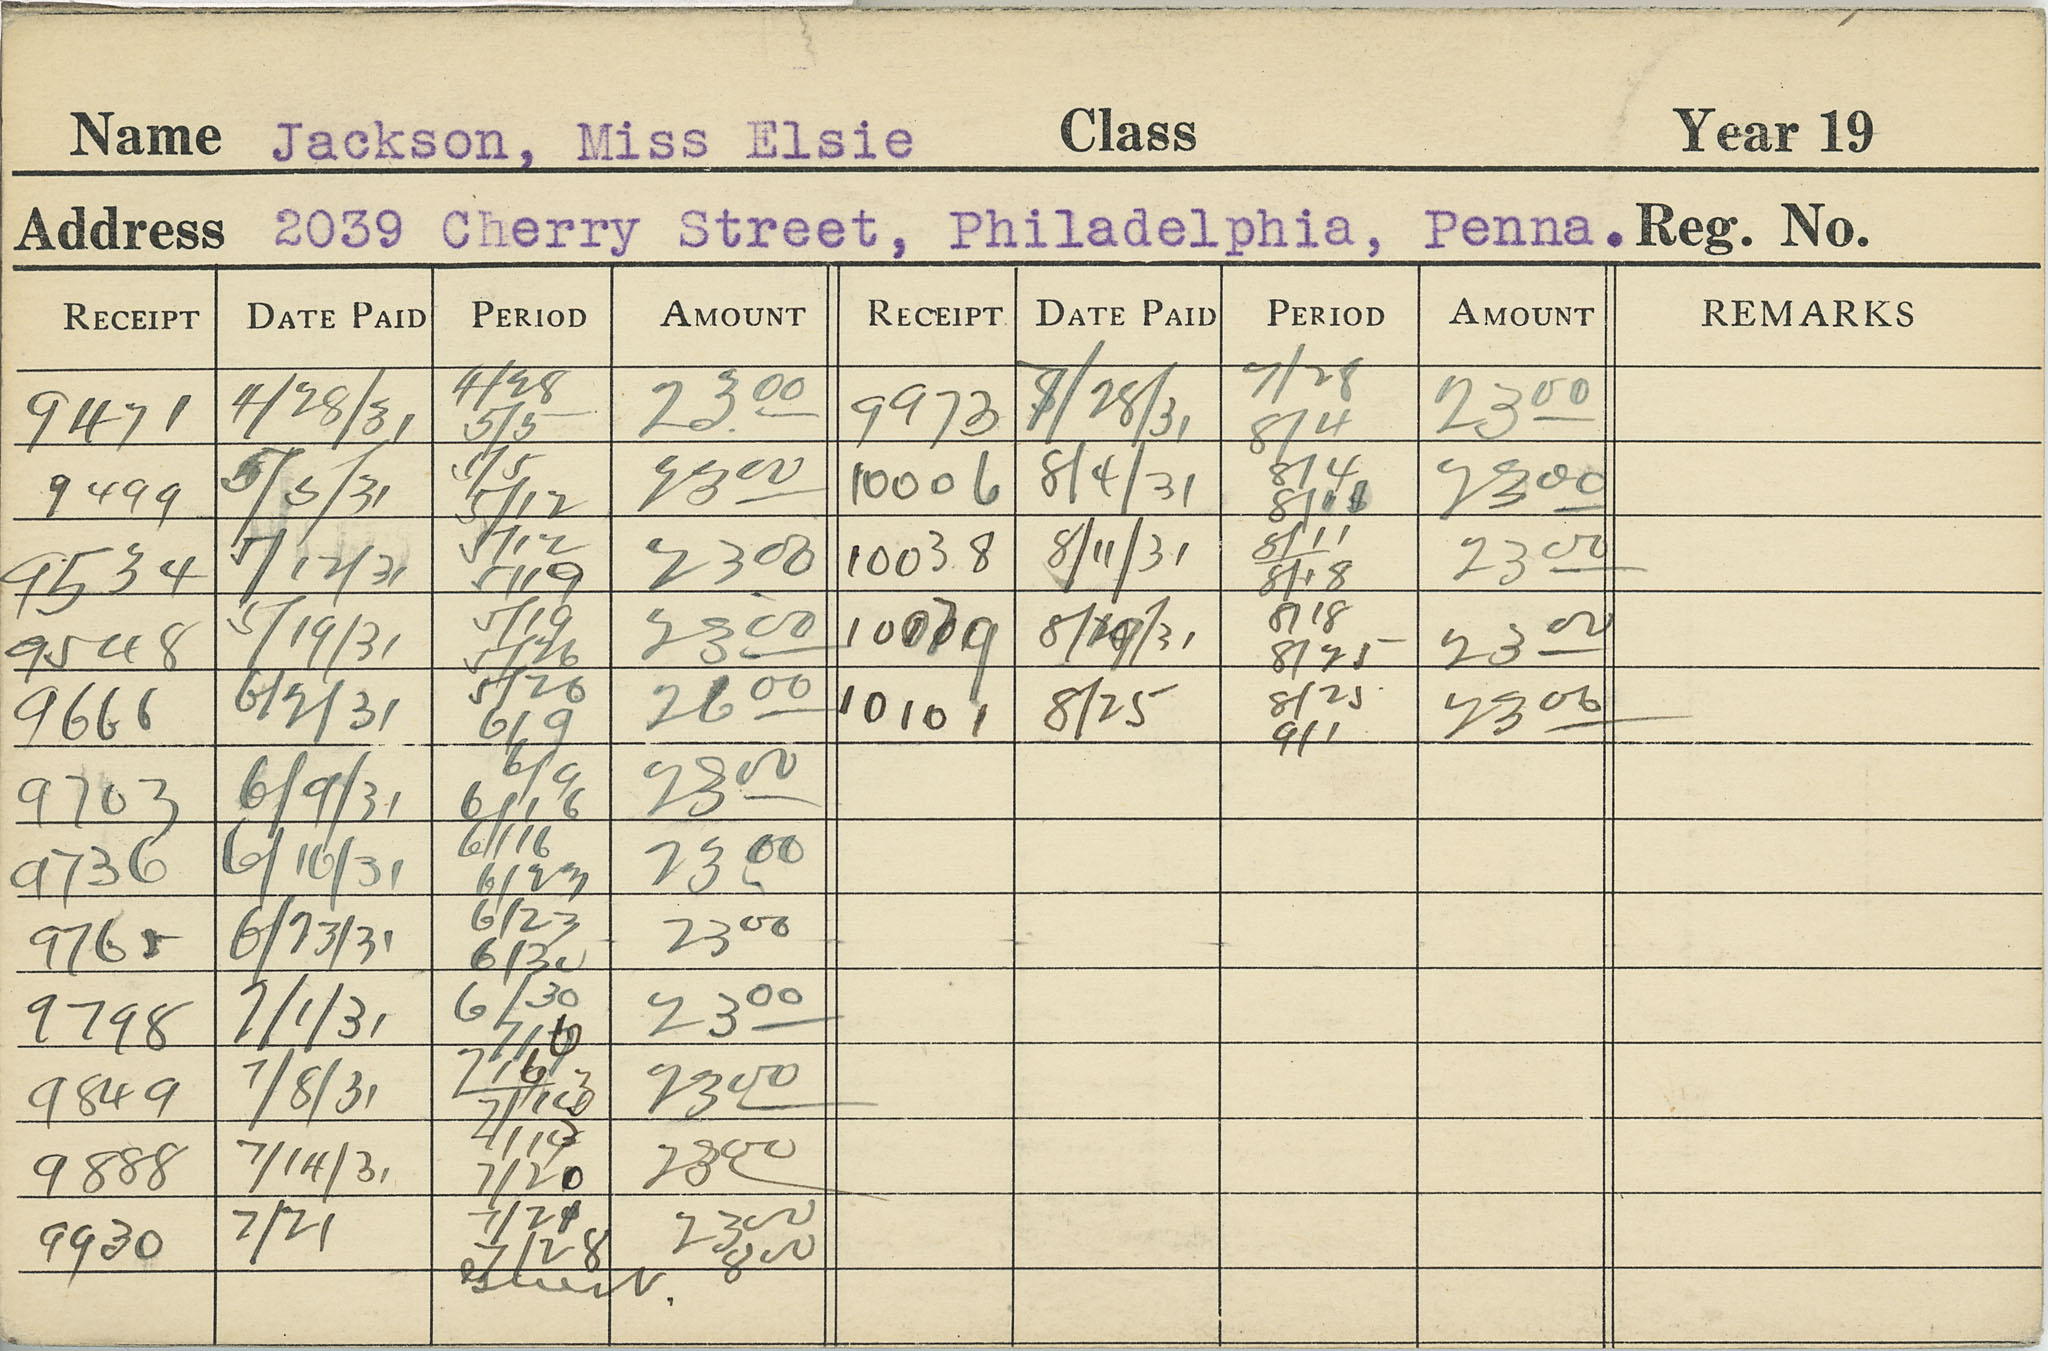 Name Jackson, Miss Elsie Class Year 19
Address 2039 Cherry Street, Philadelphia, Penna. Reg. No.
RECEIPT DATE PAID PERIOD AMOUNT RECEIPT DATE PAID PERIOD AMOUNT REMARKS
9471 4/28/31 4/28 5/5 23 00 9973 7/28/31 7/28 8/4 23 00
9499 5/5/31 5/5 5/12 23 00 10006 8/4/31 8/4 8/11 23 00
9534 5/12/31 5/12 5/19 23 00 10038 8/11/31 8/11 8/18 23 00
9548 5/19/31 5/19 5/26 23 00 8/19/31 8/18 8/25 23 00
9666 6/2/31 5/26 6/9 26 00 10101 8/25 8/25 9/1 23 00
9703 6/9/31 6/9 6/16 23 00
9736 6/16/31 6/16 6/23 23 00
9765 6/23/31 6/23 6/30 23 00
9798 7/1/31 6/30 23 00
9849 7/8/31 23 00
9888 7/14/31 7/20 23 00
9930 7/21 7/21 7/28 23 00
8 00